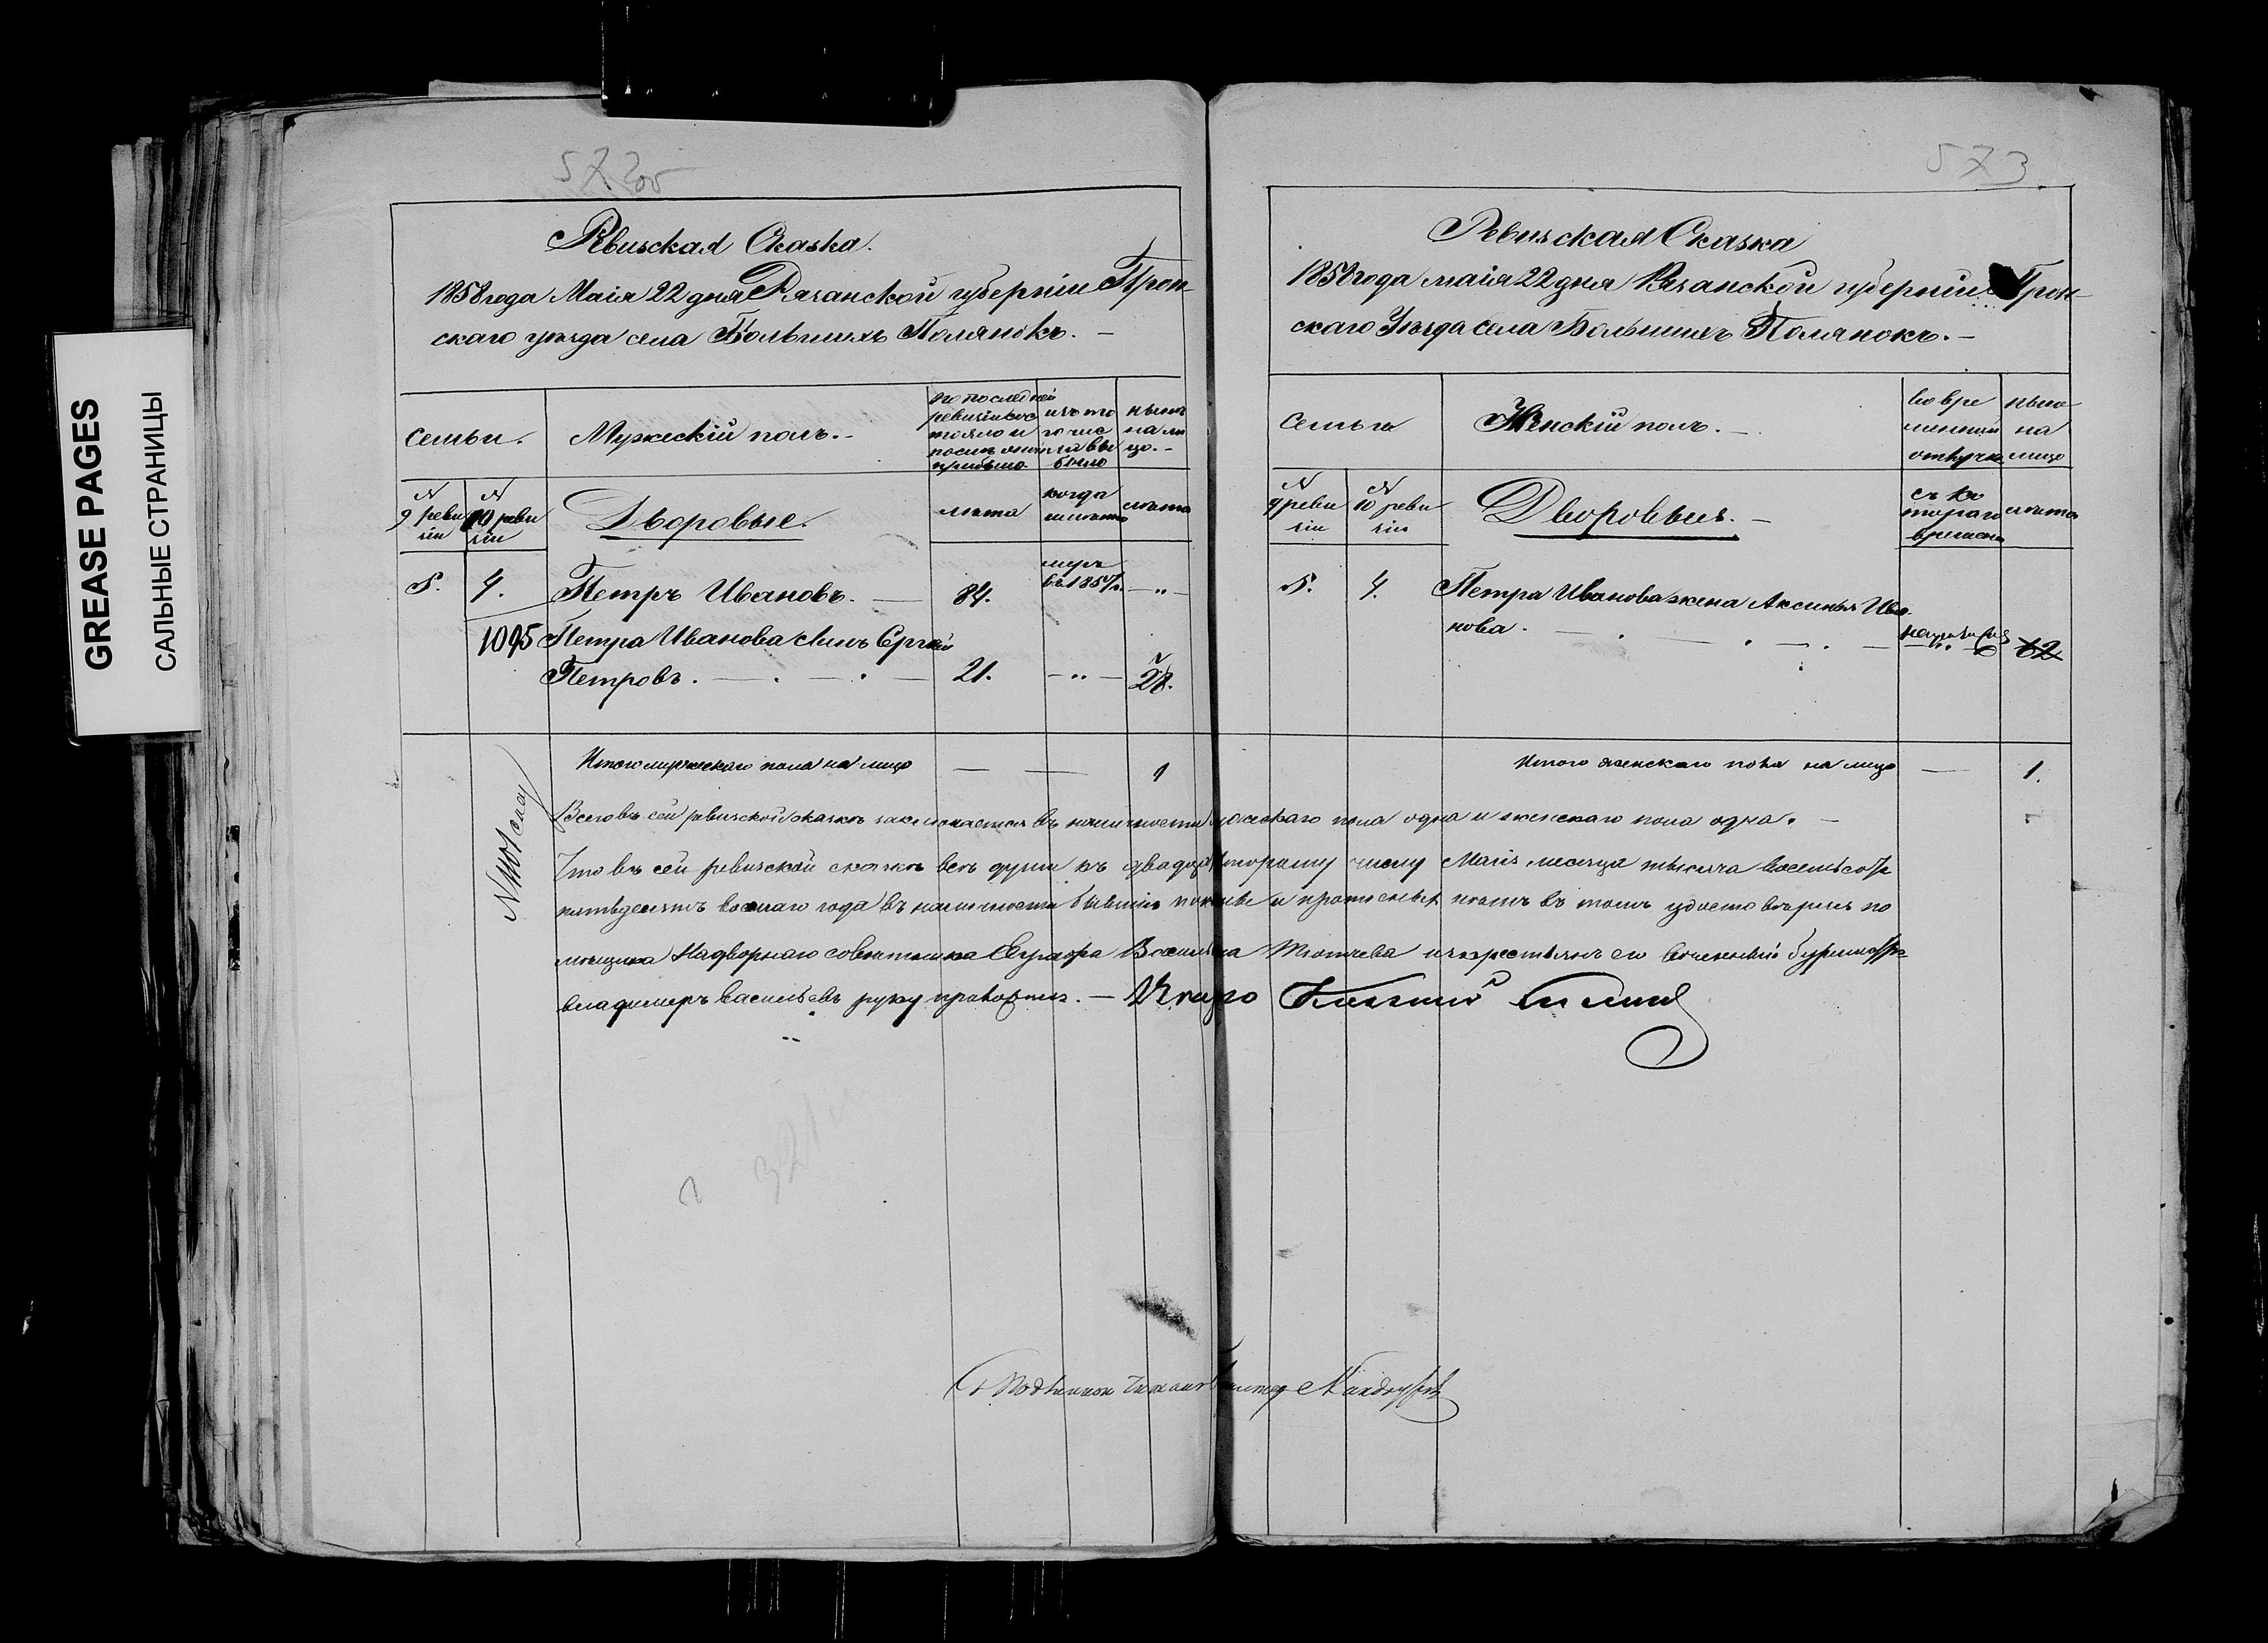 GREASE PAGES
САЛЬНЫЕ СТРАНИЦЫ
572об
Ревизская Сказка.
1858 года Маія 22 дня Рязанской губерніи Прон-
скаго уѣзда села Большихъ Полянокъ. —
семьи.
Мужескій полъ. —
по последней
ревизіи сос
тояло и
после оной
прибыло
изъ то
го чис
ла вы
было
нынѣ
на ли
цо. —
№
9 реви
зіи
№
10 реви
зіи
Дворовые.
лѣта
когда
именно
лѣта
5.
4.
Петръ Ивановъ. —
84.
умръ
въ 1857 г.
— " —
1095
Петра Иванова сынъ Сергѣй
Петровъ. — . — . —
21.
— " —
28.
Итого мужескаго пола на лицо — —
1
573
Ревизская Сказка
1858 года маія 22 дня Рязанской губерніи Прон-
скаго Уѣзда села Большихъ Полянокъ. —
Семьи
Женскій полъ. —
во вре
менной
отлучке
ныне
на
лицо
№
9 реви
зіи
№
10 реви
зіи
Дворовые. —
съ ко
тораго
времени
лѣта
5.
4.
Петра Иванова жена Аксинья Ива
нова. — . — . — . —
62
Итого женскаго пола на лицо —
1.
Всего въ сей ревизской сказкѣ заключается въ наличности мужескаго пола одна и женскаго пола одна. —
Что въ сей ревизской сказкѣ всѣ души къ двадцать второму числу Маія месяца тысяча восемьсотъ
пятьдесятъ восмаго года въ наличности бывшія показаны и прописныхъ нѣтъ въ томъ удостовѣряю по
мѣщика Надворнаго советника Василья Тютчева изъ крестьянъ его вотчинный бурмистръ
владимеръ васильевъ руку приложилъ. —